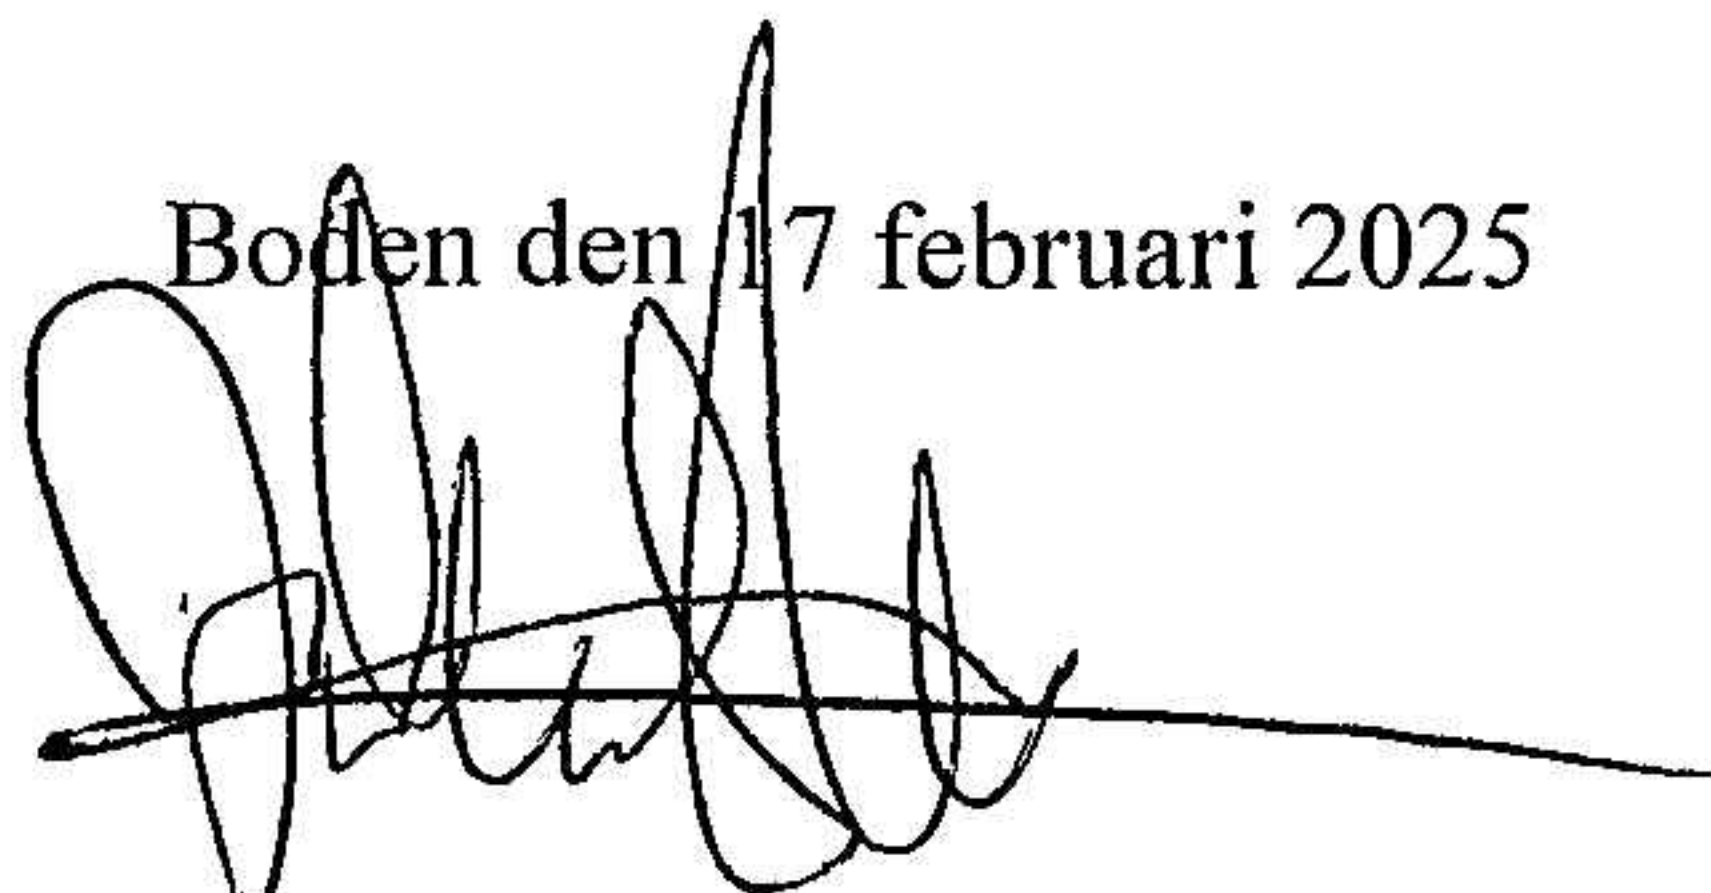 Boden den 17 februari 2025